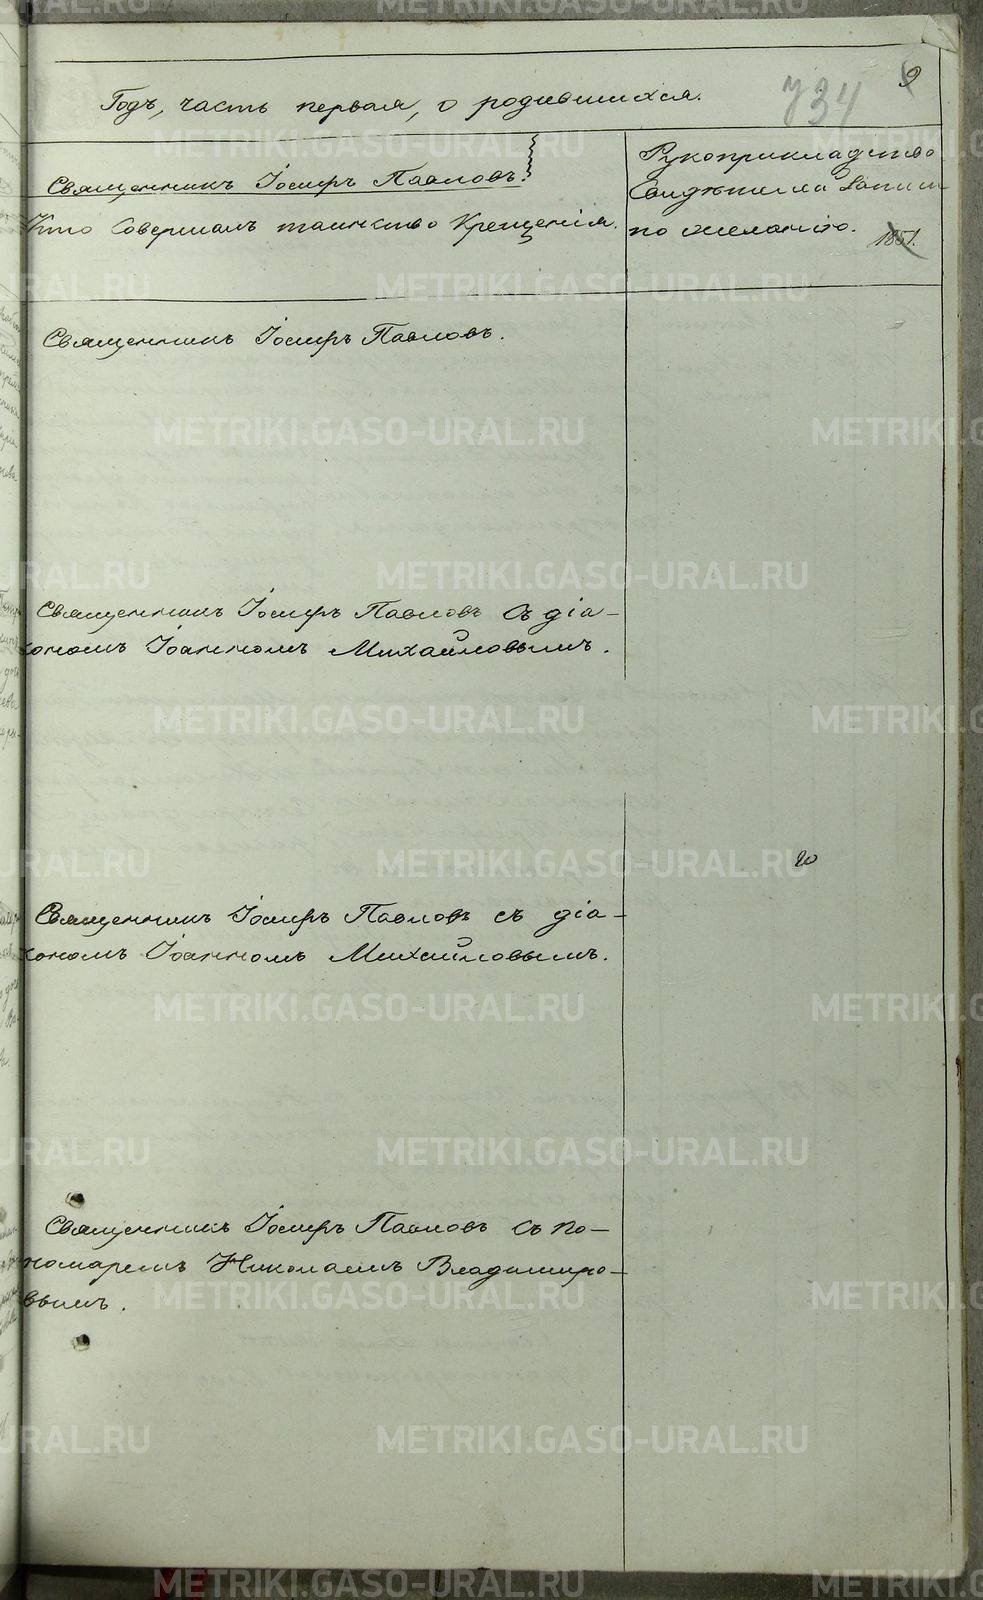 9
734
Годъ, часть первая, о родившихся.
Священникъ Іосифъ Павловъ.
Кто Совершалъ таинство Крещенія.
Рукоприкладство
Свидѣтелей
по желанію.
1851.
Священникъ Іосифъ Павловъ.
Священникъ Іосифъ Павловъ съ діа-
кономъ Іоанномъ Михайловымъ.
Священникъ Іосифъ Павловъ съ діа-
кономъ Іоанномъ Михайловымъ.
Священникъ Іосифъ Павловъ съ по-
номаремъ Николаемъ Владиміро-
вымъ.
METRIKI.GASO-URAL.RU